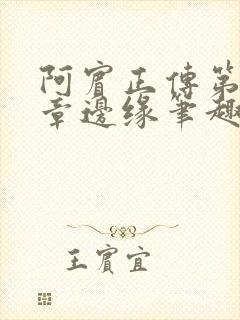 阿賓正傳第
章邊缘筆趣
王賓宜